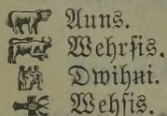 Auns.
Wehrẜis.
Dwihņi.
Wehſis.